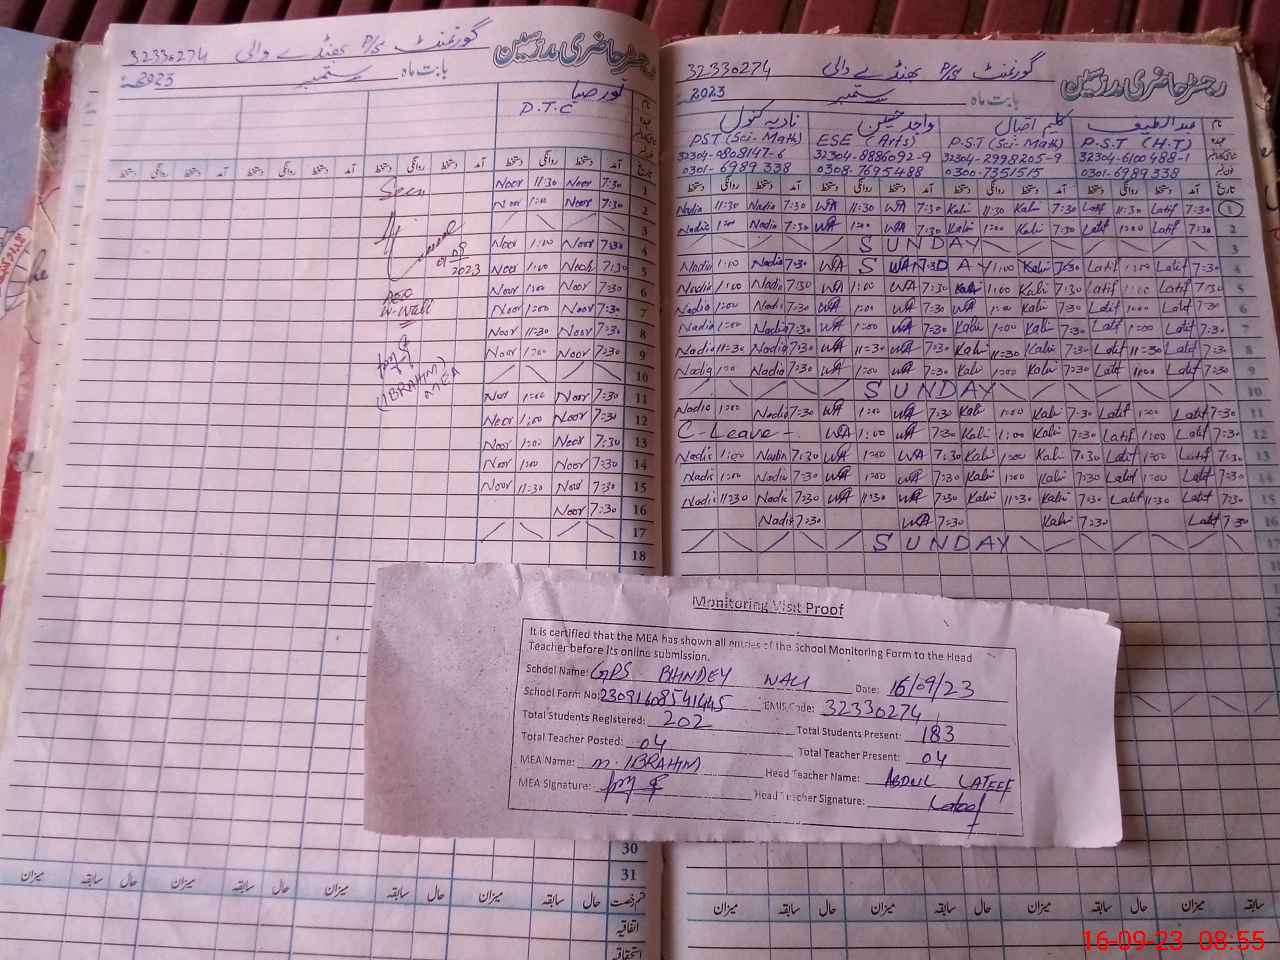 رجسٹر حاضری مدرسین
گورنمنٹ P/S بھنڈے والی 32330274
بابت ماہ ستمبر 2023
نور صبا
P.T.C
Seen
2023
W-Wali
(IBRAHIM)
MEA
1 7:30 Noor 11:30 Noor
2 7:30 Noor 1:00 Noor
3
4 7:30 Noor 1:00 Noor
5 7:30 Noor 1:00 Noor
6 7:30 Noor 1:00 Noor
7 7:30 Noor 1:00 Noor
8 7:30 Noor 11:30 Noor
9 7:30 Noor 1:00 Noor
10
11 7:30 Noor 1:00 Noor
12 7:30 Noor 1:00 Noor
13 7:30 Noor 1:00 Noor
14 7:30 Noor 1:00 Noor
15 7:30 Noor 11:30 Noor
16 7:30 Noor
17
18
30
31
میزان سابقہ حال میزان سابقہ حال میزان سابقہ حال میزان سابقہ حال
اتفاقیہ
استحقاقیہ
رجسٹر حاضری مدرسین
گورنمنٹ P/S بھنڈے والی 32330274
بابت ماہ ستمبر 2023
عبدالطیف کلیم اقبال واجد حسین نادیہ کنول
PST (Sci-Math) ESE (Arts) P.S.T (Sci-Math) P.S.T (H.T)
32304-8886092-9 32304-2998205-9 32304-6100488-1
0301-6989338 0308-7695488 0300-7351515 0301-6989338
Nadia 11:30 Nadia 7:30 WA 11:30 WA 7:30 Kalim 11:30 Kalim 7:30 Latif 11:30 Latif 7:30 1
Nadia 1:00 Nadia 7:30 WA 1:00 WA 7:30 Kalim 1:00 Kalim 7:30 Latif 1:00 Latif 7:30 2
SUNDAY 3
Nadia 1:00 Nadia 7:30 WA S U N D A Y 1:00 Kalim 7:30 Latif 1:00 Latif 7:30 4
Nadia 1:00 Nadia 7:30 WA 1:00 WA 7:30 Kalim 1:00 Kalim 7:30 Latif 1:00 Latif 7:30 5
Nadia 1:00 Nadia 7:30 WA 1:00 WA 7:30 WA 1:00 Kalim 7:30 Latif 1:00 Latif 7:30 6
Nadia 1:00 Nadia 7:30 WA 1:00 WA 7:30 Kalim 1:00 Kalim 7:30 Latif 1:00 Latif 7:30 7
Nadia 11:30 Nadia 7:30 WA 11:30 WA 7:30 Kalim 11:30 Kalim 7:30 Latif 11:30 Latif 7:30 8
Nadia 1:00 Nadia 7:30 WA 1:00 WA 7:30 Kalim 1:00 Kalim 7:30 Latif 1:00 Latif 7:30 9
SUNDAY 10
Nadia 1:00 Nadia 7:30 WA 1:00 WA 7:30 Kalim 1:00 Kalim 7:30 Latif 1:00 Latif 7:30 11
C-Leave - WA 1:00 WA 7:30 Kalim 1:00 Kalim 7:30 Latif 1:00 Latif 7:30 12
Nadia 1:00 Nadia 7:30 WA 1:00 WA 7:30 Kalim 1:00 Kalim 7:30 Latif 1:00 Latif 7:30 13
Nadia 1:00 Nadia 7:30 WA 1:00 WA 7:30 Kalim 1:00 Kalim 7:30 Latif 1:00 Latif 7:30 14
Nadia 11:30 Nadia 7:30 WA 11:30 WA 7:30 Kalim 11:30 Kalim 7:30 Latif 11:30 Latif 7:30 15
Nadia 7:30 WA 7:30 Kalim 7:30 Latif 7:30 16
SUNDAY 17
Monitoring Visit Proof
It is certified that the MEA has shown all entries of the School Monitoring Form to the Head
Teacher before its online submission.
School Name: GPS BHNDEY WALI Date: 16/09/23
School Form No: 23091608541445 EMIS Code: 32330274
Total Students Registered: 202 Total Students Present: 183
Total Teacher Posted: 04 Total Teacher Present: 04
MEA Name: M. IBRAHIM Head Teacher Name: ABDUL LATEEF
MEA Signature: Head Teacher Signature: Lateef
میزان سابقہ حال میزان سابقہ حال میزان سابقہ حال میزان سابقہ
16-09-23 08:55